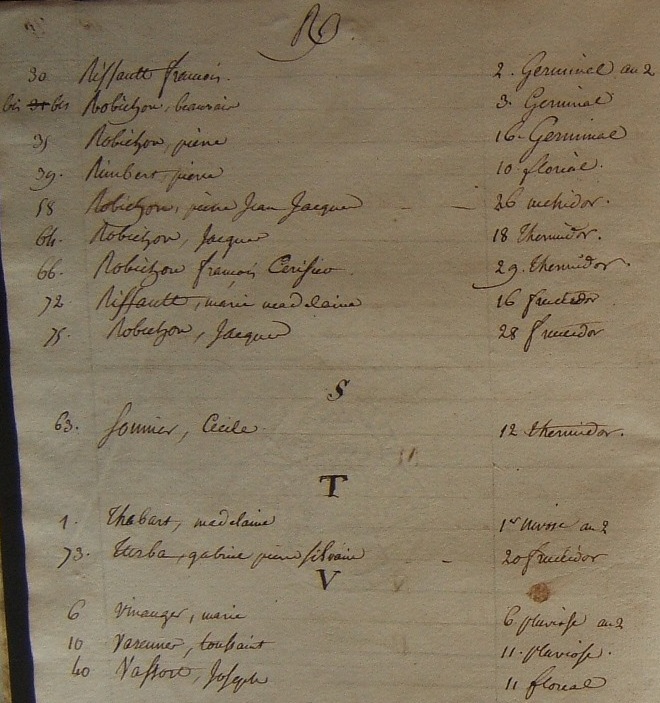 R
30 Riffault francois. 2. Germinal an 2
bis 31 bis Robichon, beauvais 3. Germinal
35 Robichon, pierre 16. Germinal
39. Rimbert, pierre 10 floréal.
58 Robichon, pierre Jean Jacques 26 messidor.
64. Robichon, Jacques 18 thermidor.
66. Robichon francois 29. thermidor.
72. Riffault, marie madelaine 16 fructidor
75. Robichon, Jacques 28 fructidor
S
63. Sonnier, Cécile. 12 thermidor.
T
1. Thabart, madelaine 1er nivose an 2
73. gabriel pierre silvain 20 fructidor
V
6 Vinauger, marie 6 pluviose an 2
10 Varennes, toussaint 11. pluviose.
40 Joseph 11 floréal